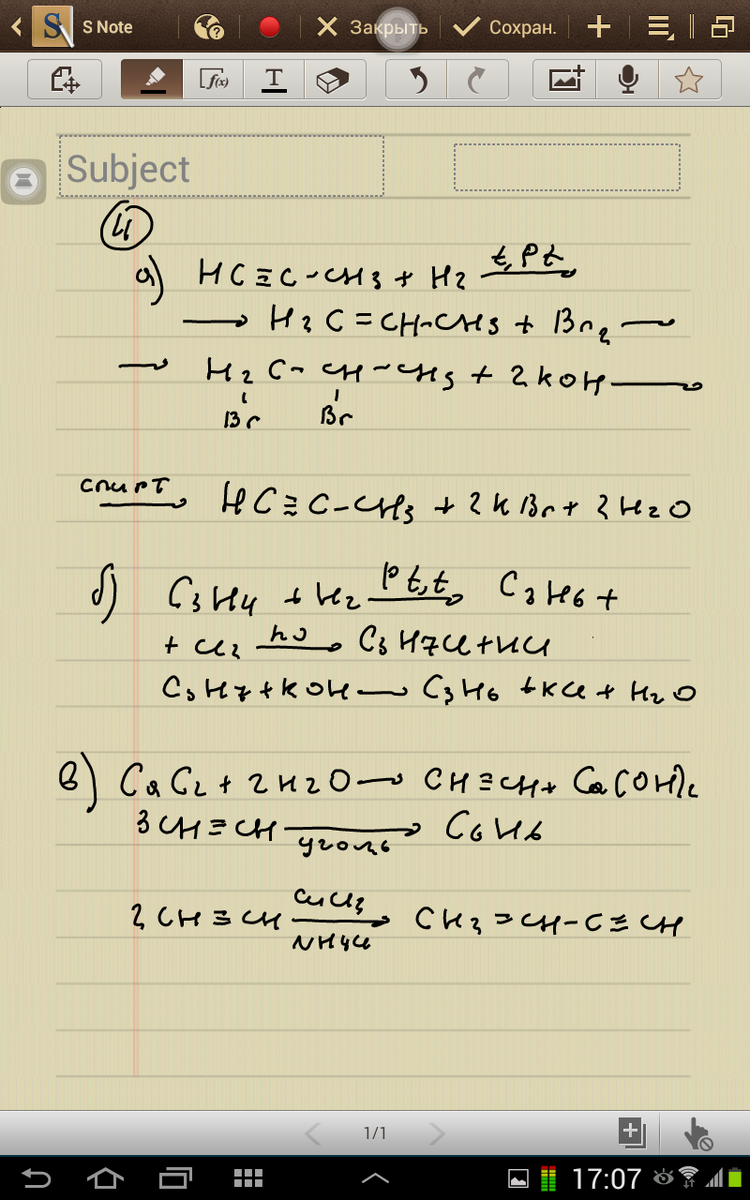 S Note
Закрыть
Сохран.
f(x)
T
Subject
4
а) HC≡C-CH3 + H2 t, Pt
→ H2C=CH-CH3 + Br2 →
→ H2C-CH-CH3 + 2KOH →
Br Br
спирт → HC≡C-CH3 + 2KBr + 2H2O
б) C3H4 + H2 Pt, t → C3H6 +
+ Cl2 hν → C3H7Cl + HCl
C3H7 + KOH → C3H6 + KCl + H2O
в) CaC2 + 2H2O → CH≡CH + Ca(OH)2
3CH≡CH → C6H6
уголь
CuCl2
2CH≡CH → CH2=CH-C≡CH
NH4Cl
1/1
17:07